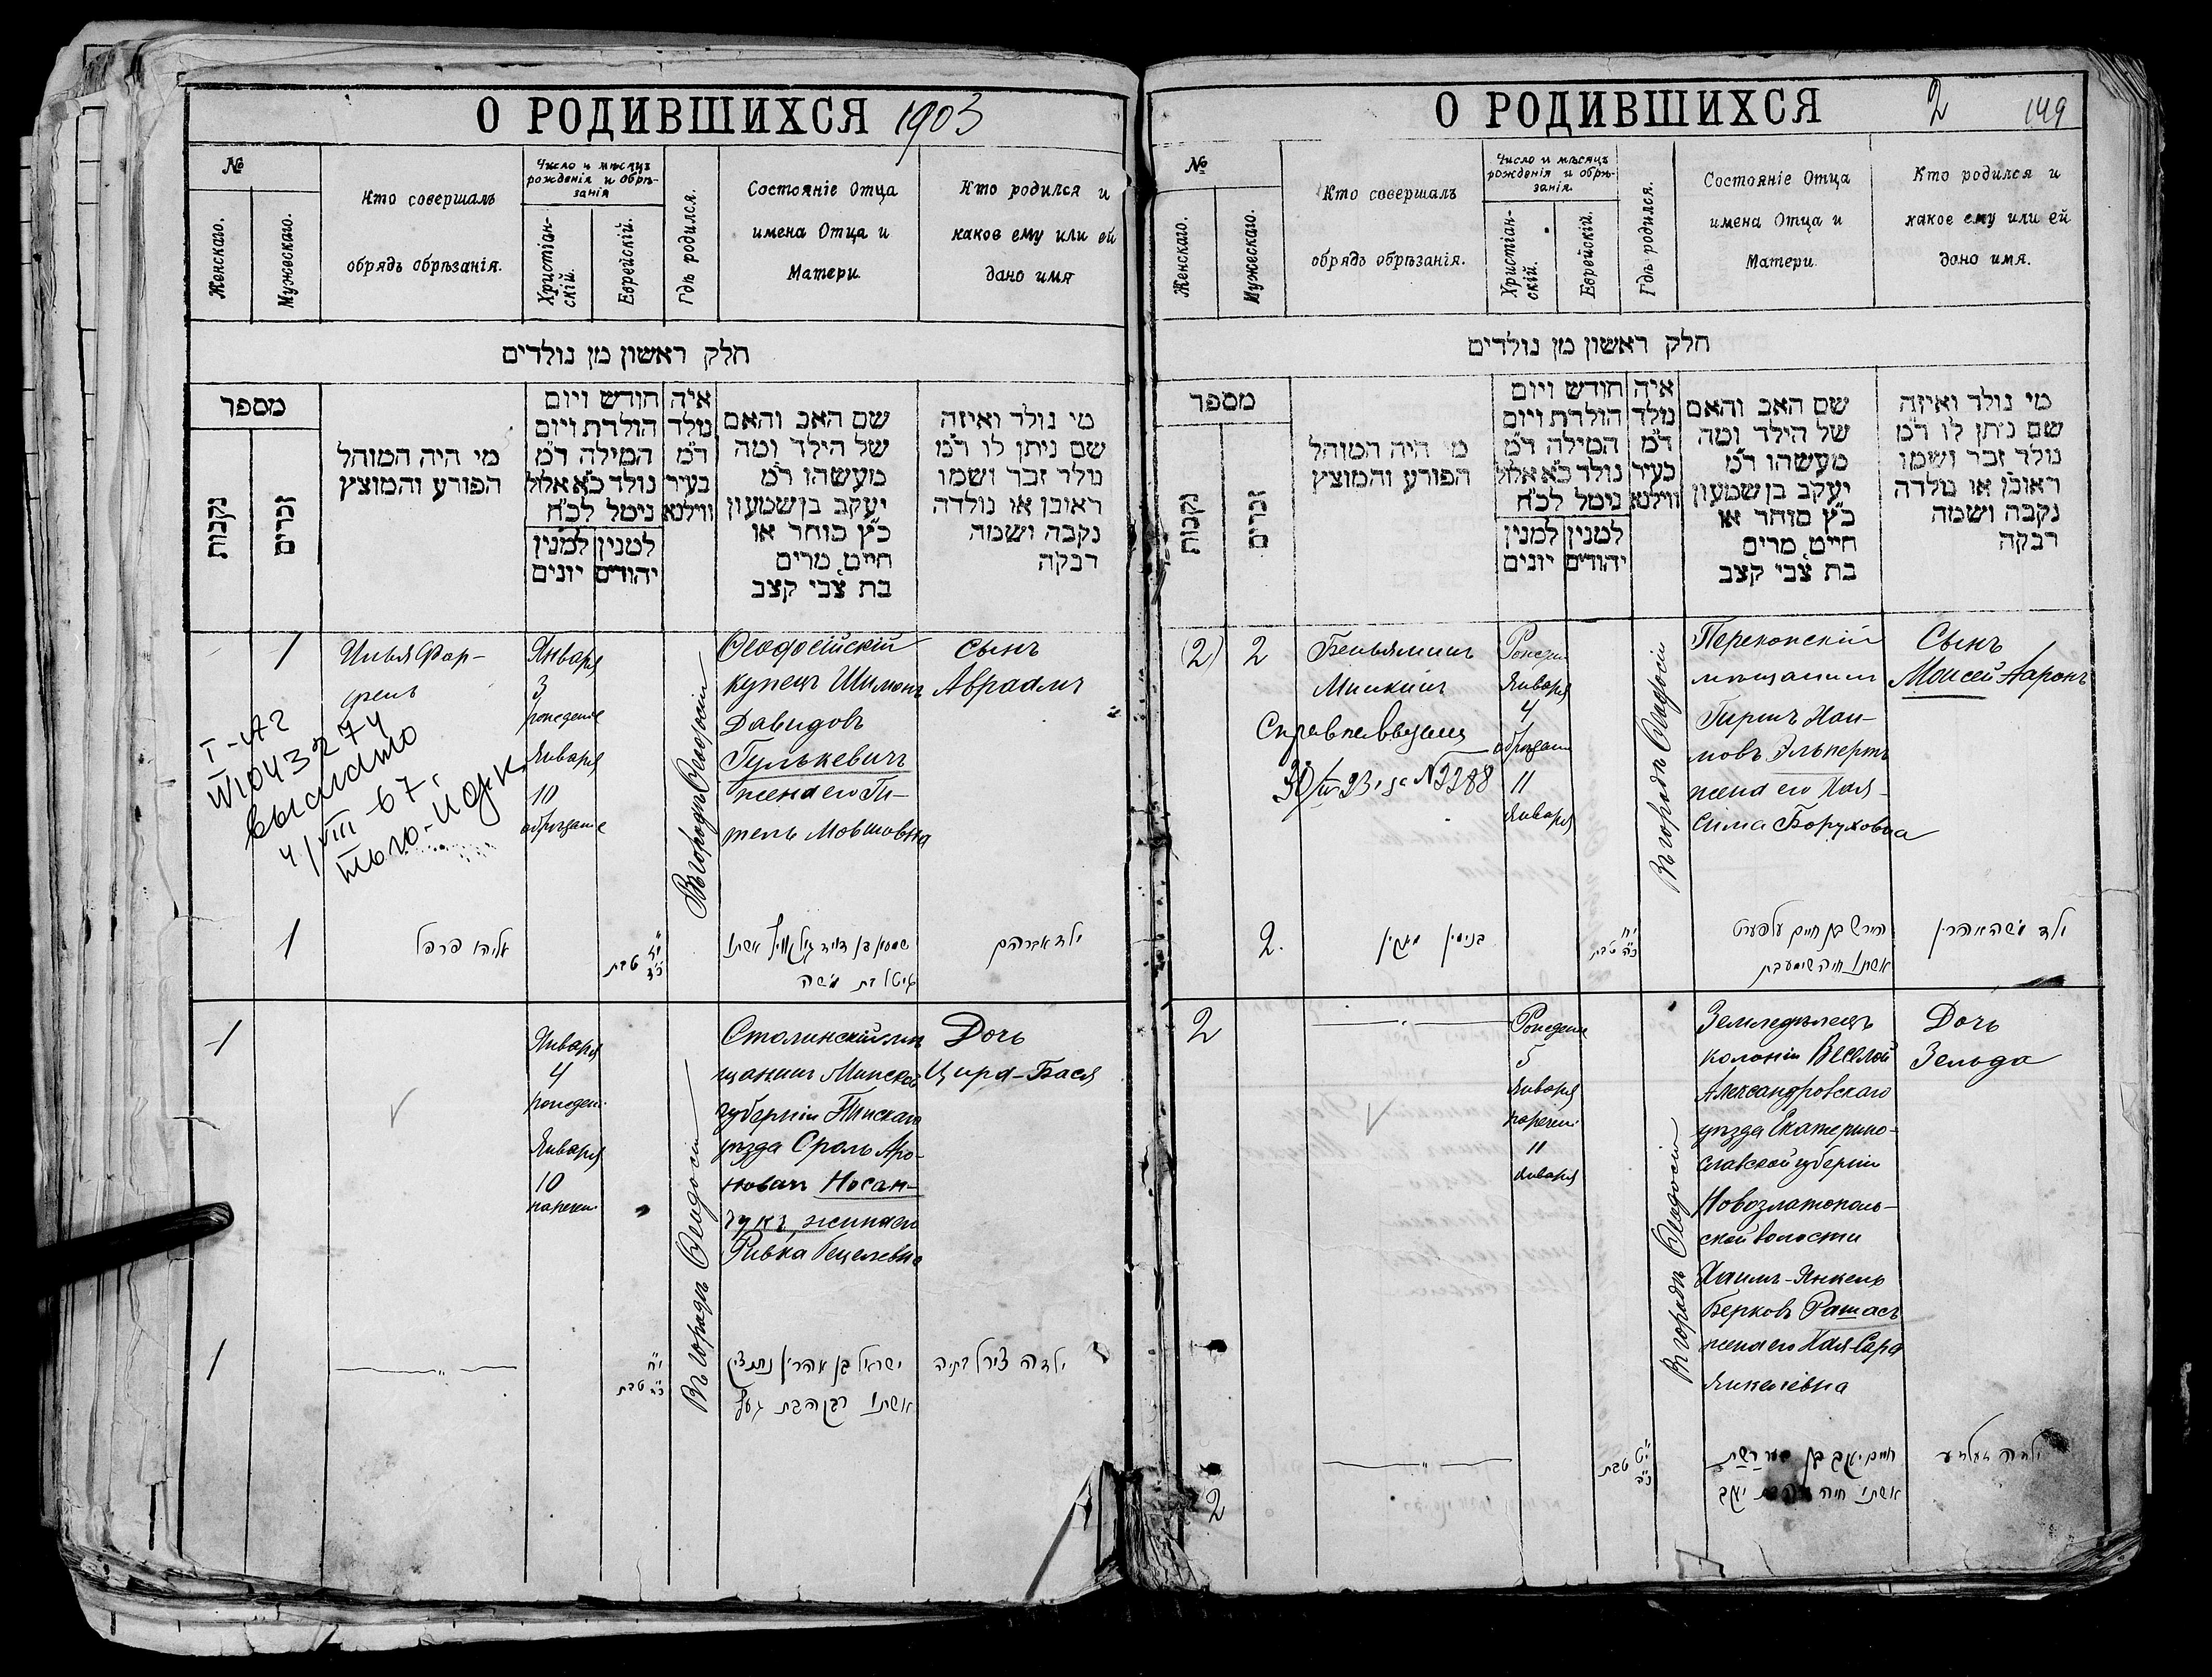 О РОДИВШИХСЯ 1903
№
Женскаго.
Мужескаго.
Кто совершалъ
обрядъ обрѣзанія.
Число и мѣсяцъ
рожденія и обрѣ-
занія
Христіан-
скій.
Еврейскій.
Гдѣ родился.
Состояніе Отца
имена Отца и
Матери
Кто родился и
какое ему или ей
дано имя
חלק ראשון מן נולדים
מספר
נקבות
זכרים
מי היה המוהל
הפורע והמוצץ
חודש ויום
הולדת ויום
המילה ד״מ
נולד כ״א אלול
נימל לכ״ח
למנין למנין
יהודים יונים
איה
נולד
ד״מ
בעיר
ווילנא
שם האב והאם
של הילד ומה
מעשהו ד״מ
יעקב בן שמעון
כ״ץ סוחר או
חייט, מרים
בת צבי קצב
מי נולד ואיזה
שם ניתן לו ד״מ
נולד זכר ושמו
ראובן או נולדה
נקבה ושמה
רבקה
1
Илья Фор-
Января
3
рожденіе
Января
10
обрѣзаніе
Въ городѣ Ѳеодосіи
Ѳеодосійскій
купецъ Шимонъ
Давидовъ
Гулькевичъ
жена его Ги-
тель Мовшовна
Сынъ
Авраамъ
I-АГ
№1043274
выслано
4/VIII-67г.
1
טבת
אשתו
בת משה
ילד אברהם
1
Января
4
рожден.
Января
10
наречен.
Въ городѣ Ѳеодосіи
Столинскій мѣ-
щанинъ Минской
губерніи Пинскаго
уѣзда Сроль Аро-
новъ Носан-
чукъ жена его
Ривка Гецелевна
Дочь
Цира-Бася
1
י״ח
כ״ד טבת
ישראל בן אהרין
אשתו רבקה בת
ילדה צירל בתיה
О РОДИВШИХСЯ 2 149
№
Женскаго.
Мужескаго.
Кто совершалъ
обрядъ обрѣзанія.
Число и мѣсяцъ
рожденія и обрѣ-
занія.
Христіан-
скій.
Еврейскій.
Гдѣ родился.
Состояніе Отца
имена Отца и
Матери
Кто родился и
какое ему или ей
дано имя.
חלק ראשון מן נולדים
מספר
נקבות
זכרים
מי היה המוהל
הפורע והמוצץ
חודש ויום
הולדת ויום
המילה ד״מ
נולד כ״א אלול
נימל לכ״ח
למנין למנין
יהודים יונים
איה
נולד
ד״מ
בעיר
ווילנא
שם האב והאם
של הילד ומה
מעשהו ד״מ
יעקב בן שמעון
כ״ץ סוחר או
חייט, מרים
בת צבי קצב
מי נולד ואיזה
שם ניתן לו ד״מ
נולד זכר ושמו
ראובן או נולדה
נקבה ושמה
רבקה
(2) 2
Беньяминъ
Минкинъ
Справка выдана
№2288
Рожден
Января
4
обрѣзан
11
Января
Въ городѣ Ѳеодосіи
Перекопскій
мѣщанинъ
Гиршъ Хаи-
мовъ Эльпертъ
жена его Хая-
Сима Боруховна
Сынъ
Моисей Ааронъ
2.
בנימין מינקין
י״ח
כ״ה טבת
הירש בן חיים עלפערט
אשתו חיה
ילד משה אהרין
2
Рожден
5
Января
наречен.
11
Января
Въ городѣ Ѳеодосіи
Земледѣлецъ
колоніи Веселой
Александровскаго
уѣзда Екатерино-
славской губерніи
Новозлатополь-
ской волости
Хаимъ-Янкель
Берковъ Рашасъ
жена его Хая-Сара
Янкелевна
Дочь
Зельда
2
י״ט
כ״ה טבת
חיים יעקב בן
אשתו חיה
ילדה זעלדע